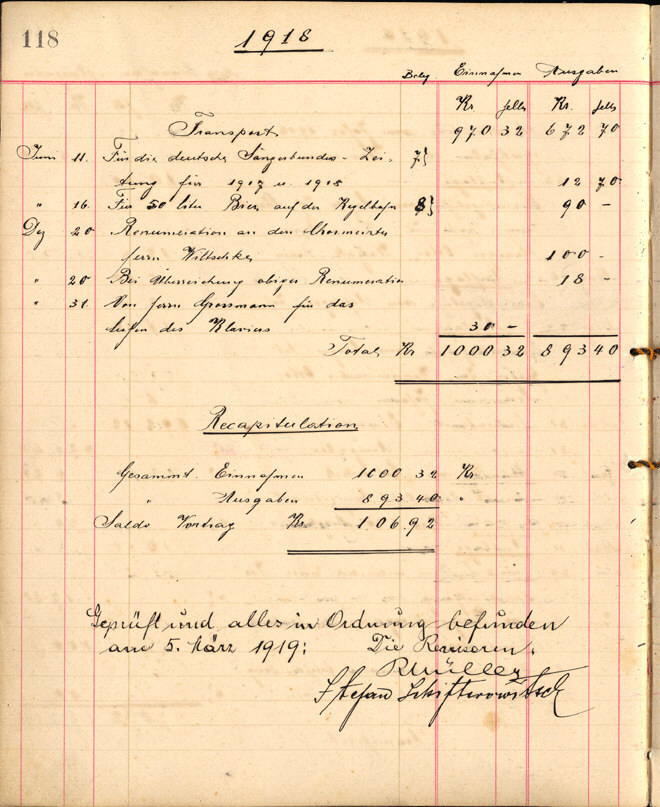 118
1918
Beleg Einnahmen Ausgaben
Kr. Hell. Kr. Hell.
Transport 970 32 672 70
Juni 11. Für die deutsche Sängerbundes-Zei- 7
tung für 1917 u. 1918 12 70
" 16. Für 50 liter Bier auf der Kegelbahn 8 90 -
Dez 20 Renumeration an den Chormeister
Herrn Wiltschke 100 -
" 20 Bei Überreichung obiger Renumeration 18 -
" 31. Von Herrn Grossmann für das
leihen des Klaviers 30 -
Total Kr 1000 32 893 40
Recapitulation
Gesammt. Einnahmen 1000 32 Kr
" Ausgaben 893.40 "
Saldo Vortrag Kr 106.92
Geprüft und alles in Ordnung befunden
am 5. März 1919: Die Revisoren.
RMüller
Stefan Schifterowitsch